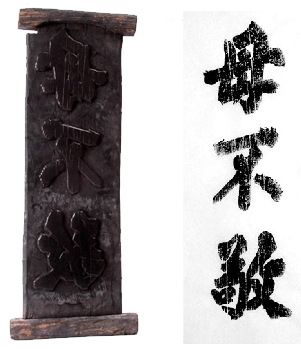 毋不敬
毋不敬